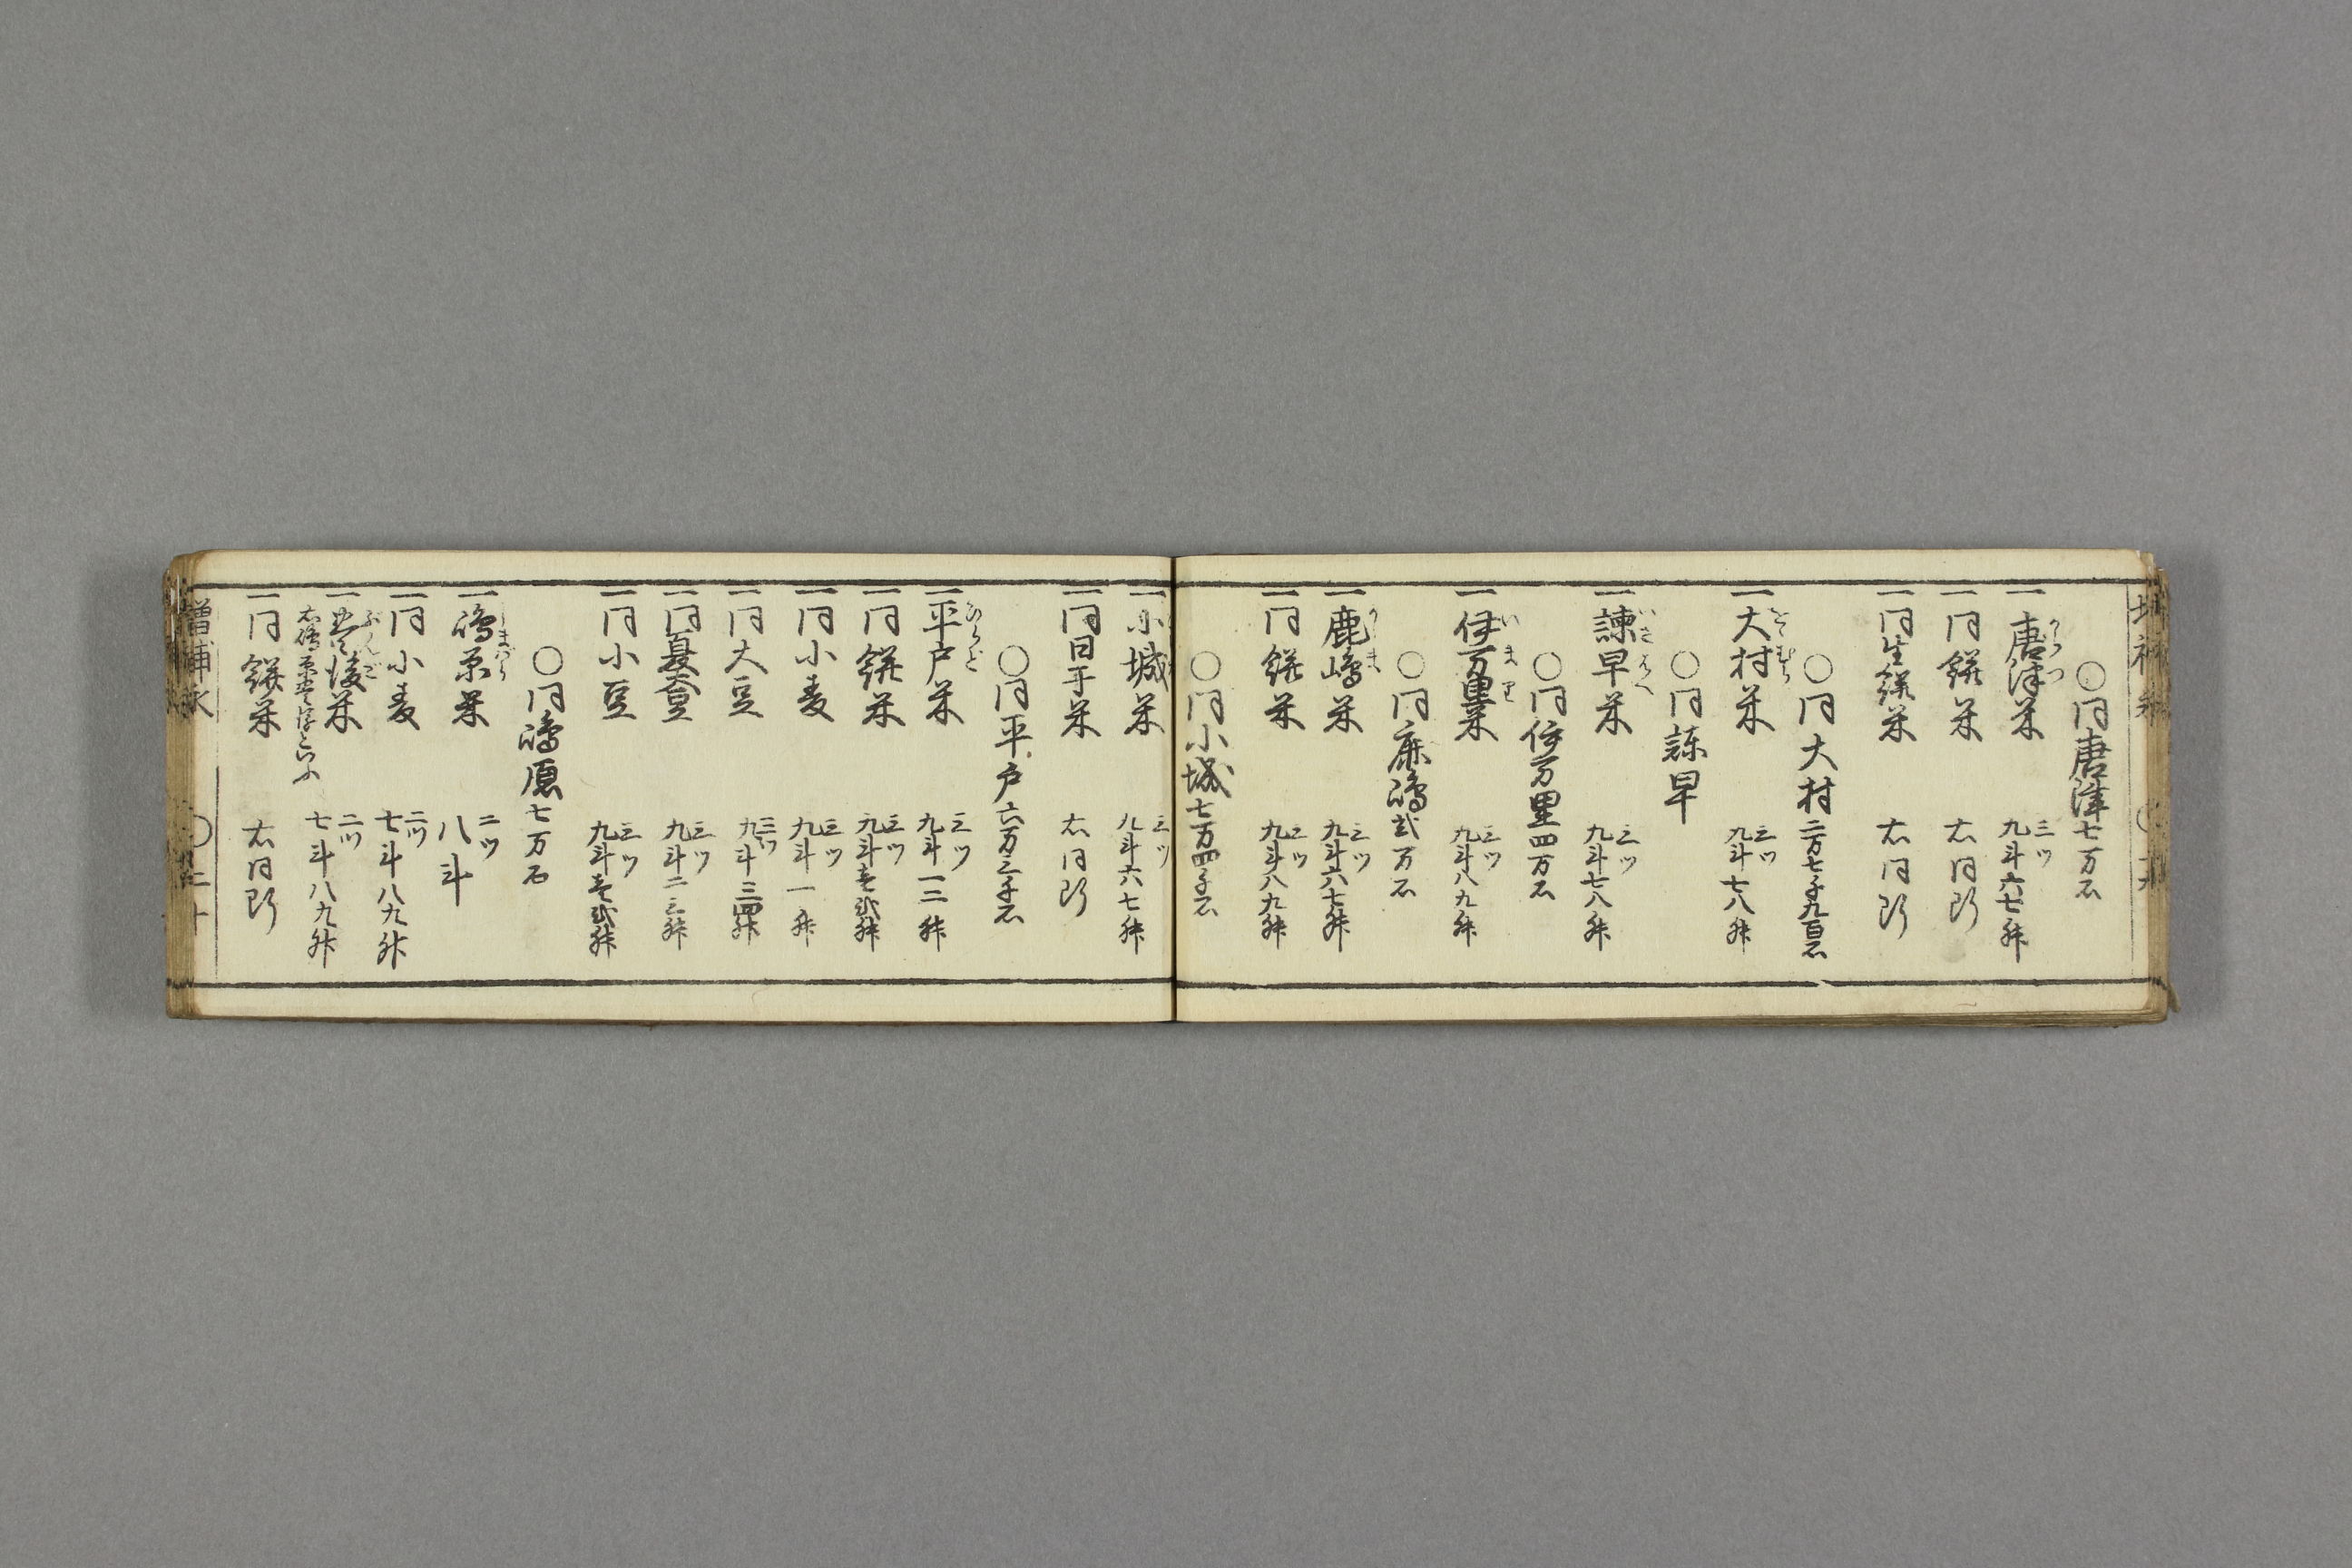 ○同唐津七万石
一唐津米 三ツ 九斗六七升
一同餅米 右同断
一同生餅米 右同断
○同大村二万七千九百石
一大村米 三ツ 九斗七八升
○同諫早
一諫早米 三ツ 九斗七八升
○同伊万里四万石
一伊万里米 三ツ 九斗八九升
○同鹿嶋弐万石
一鹿嶋米 三ツ 九斗六七升
一同餅米 三ツ 九斗八九升
○同小城七万四千石
一小城米 三ツ 九斗六七升
一同日手米 右同断
○同平戸六万三千石
一平戸米 三ツ 九斗一二升
一同餅米 三ツ 九斗壱弐升
一同小麦 三ツ 九斗一升
一同大豆 三ツ 九斗三四升
一同夏豆 三ツ 九斗二三升
一同小豆 三ツ 九斗壱弐升
○同嶋原七万石
一嶋原米 二ツ 八斗
一同小麦 二ツ 七斗八九升
一豊後米 二ツ 七斗八九升
一同餅米 右同断
増補米 ○二十